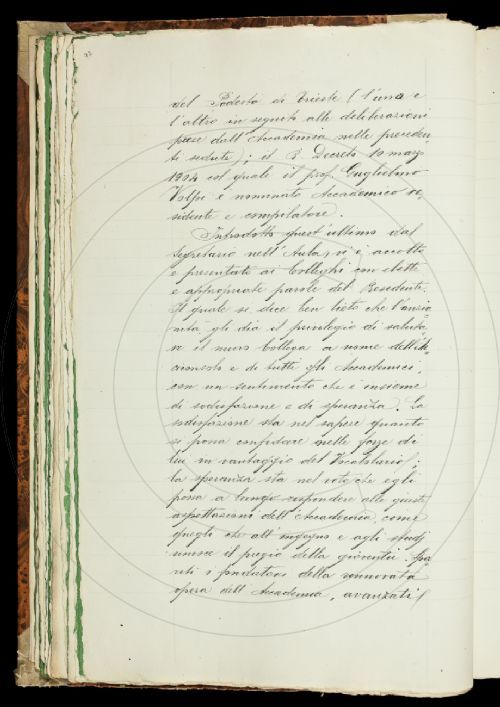 del Podestà di Trieste (l'una e
l'altro in seguito alle deliberazioni
prese dall'Accademia nelle preceden-
ti sedute); il R. Decreto 10 marzo
1904 col quale il prof. Guglielmo
Volpi è nominato Accademico re-
sidente e compilatore.
Introdotto quest'ultimo dal
Segretario nell'Aula, vi è accolto
e presentato ai Colleghi con elette
e appropriate parole del Presidente.
Il quale si dice ben lieto che l'anzia-
nità gli dia il privilegio di saluta-
re il nuovo Collega a nome dell'Ar-
ciconsolo e di tutti gli Accademici,
con un sentimento che è insieme
di sodisfazione e di speranza. La
sodisfazione sta nel sapere quanto
si possa confidare nelle forze di
lui in vantaggio del Vocabolario;
la speranza sta nel voto che egli
possa a lungo rispondere alle giuste
aspettazioni dell'Accademia, come
quegli che all'ingegno e agli studj
unisce il pregio della gioventù. Spa-
riti i fondatori della rinnovata
opera dell'Accademia, avanzati